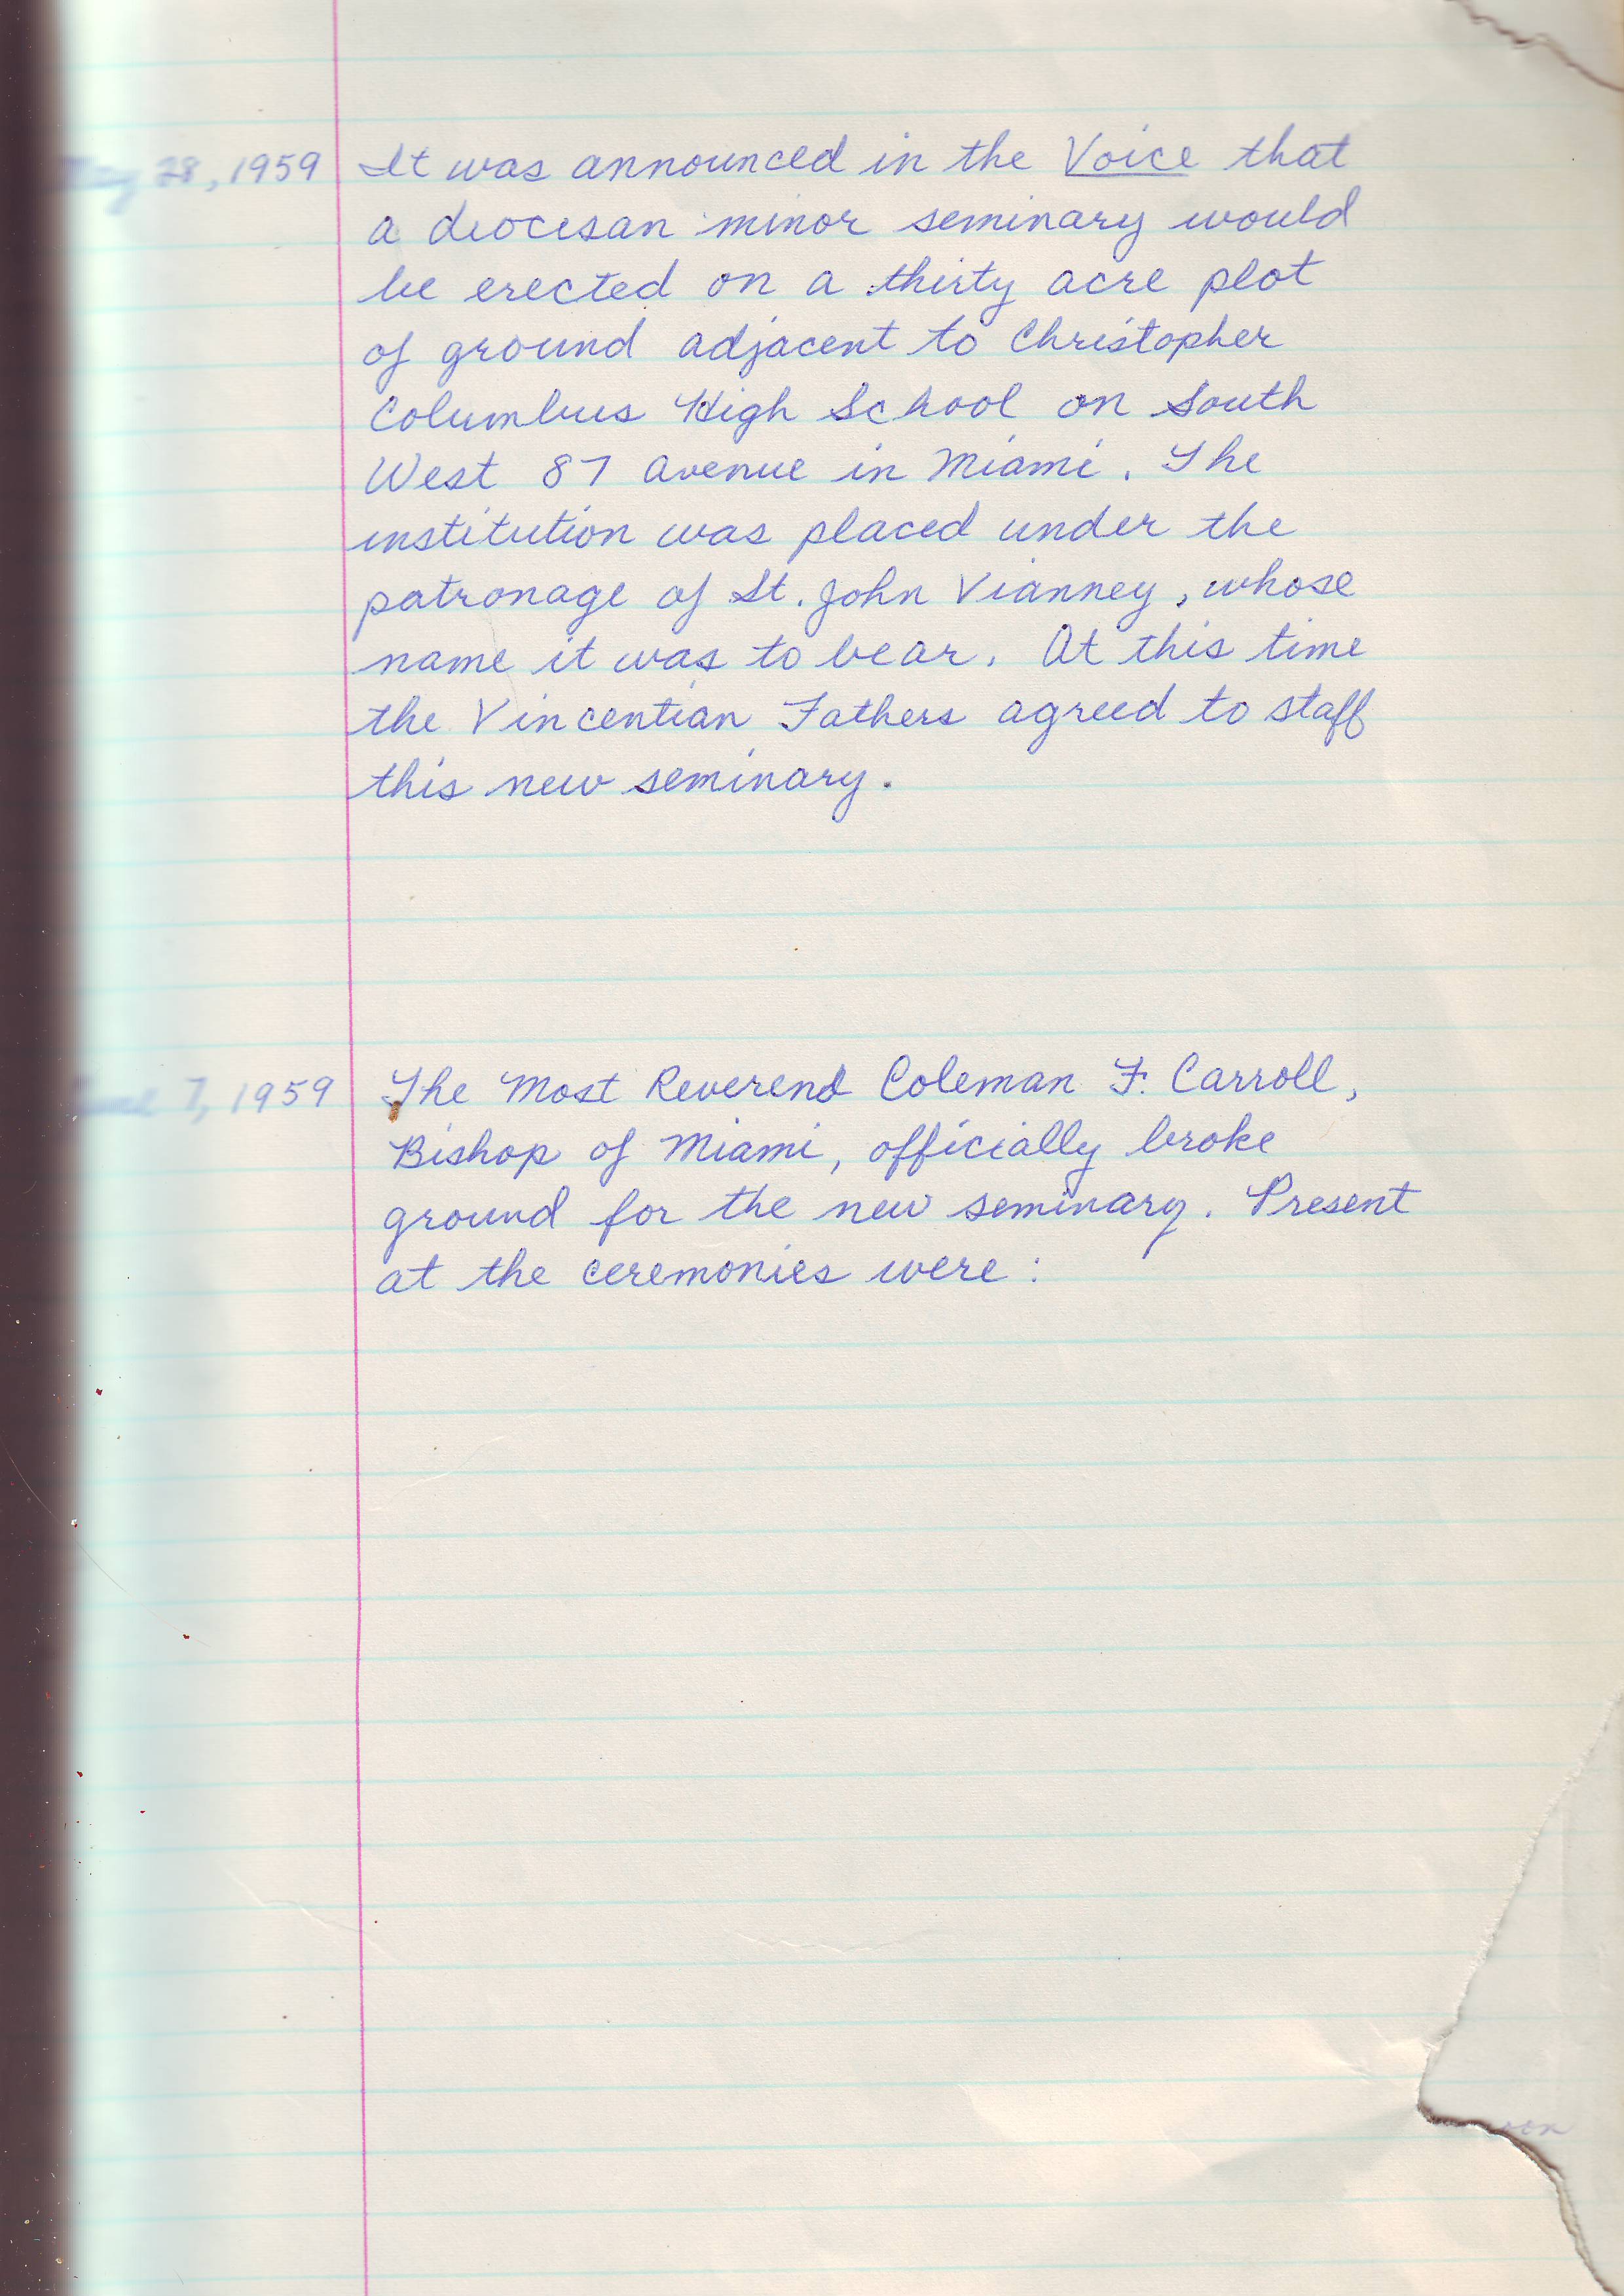 May 28, 1959 It was announced in the Voice that
a diocesan minor seminary would
be erected on a thirty acre plot
of ground adjacent to Christopher
Columbus High School on South
West 87 Avenue in Miami. The
institution was placed under the
patronage of St. John Vianney, whose
name it was to bear. At this time
the Vincentian Fathers agreed to staff
this new seminary.
June 7, 1959 The Most Reverend Coleman F. Carroll,
Bishop of Miami, officially broke
ground for the new seminary. Present
at the ceremonies were: